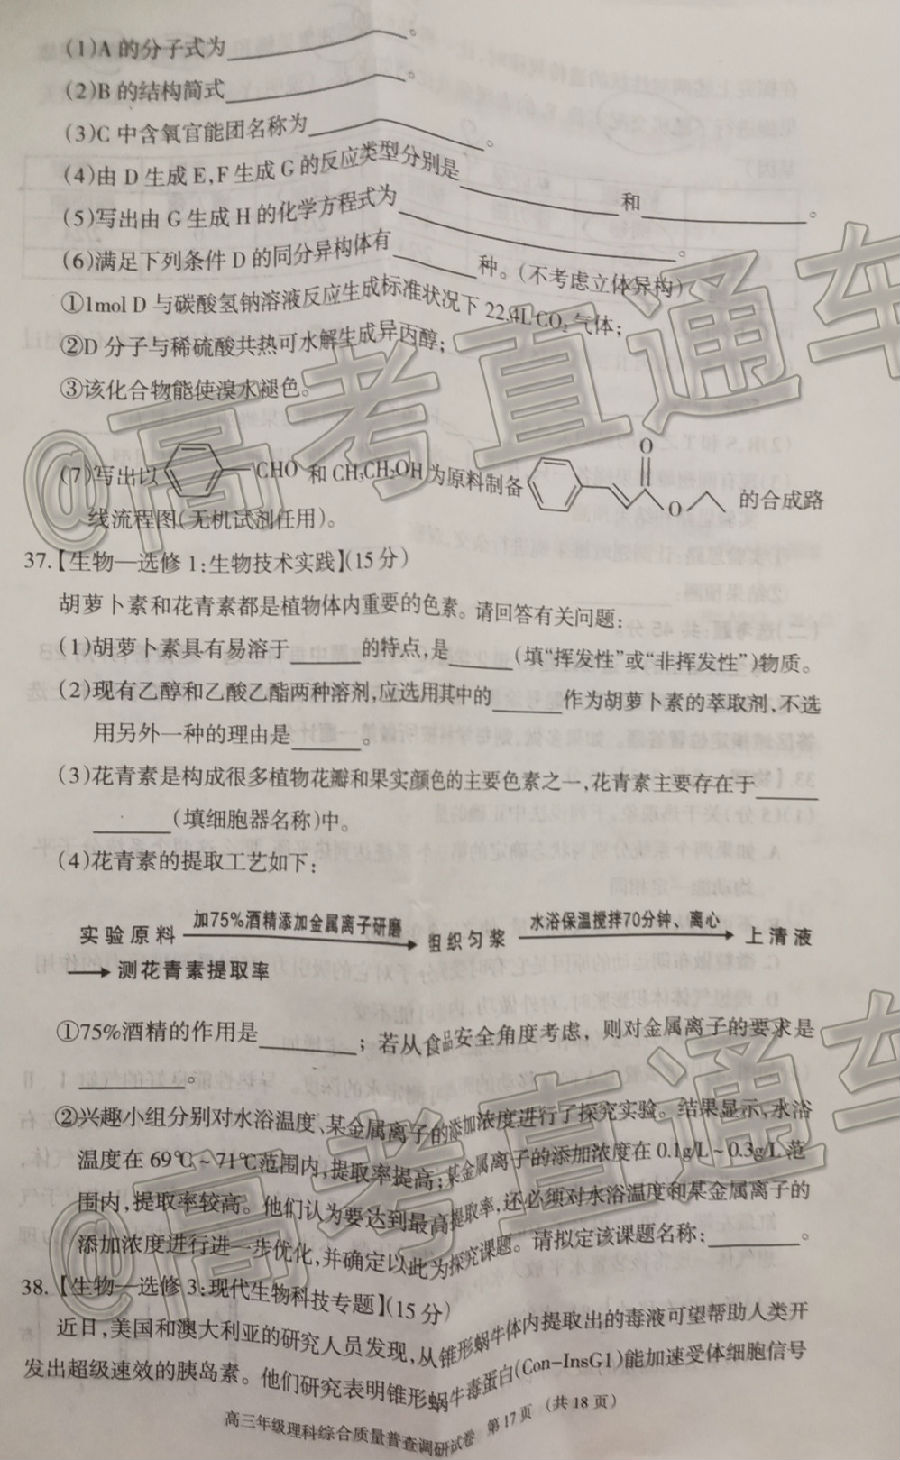 (1)A 的分子式为________。
(2)B 的结构简式________。
(3)C 中含氧官能团名称为________。
(4)由 D 生成 E,F 生成 G 的反应类型分别是________和________。
(5)写出由 G 生成 H 的化学方程式为________。
(6)满足下列条件 D 的同分异构体有________种。(不考虑立体异构)
①1mol D 与碳酸氢钠溶液反应生成标准状况下 22.4L CO₂ 气体;
②D 分子与稀硫酸共热可水解生成异丙醇;
③该化合物能使溴水褪色。
(7)写出以 —CHO 和 CH₃CH₂OH 为原料制备 O O 的合成路
线流程图(无机试剂任用)。
37.【生物—选修 1:生物技术实践】(15 分)
胡萝卜素和花青素都是植物体内重要的色素。请回答有关问题:
(1)胡萝卜素具有易溶于______的特点,是______(填“挥发性”或“非挥发性”)物质。
(2)现有乙醇和乙酸乙酯两种溶剂,应选用其中的______作为胡萝卜素的萃取剂、不选
用另外一种的理由是______。
(3)花青素是构成很多植物花瓣和果实颜色的主要色素之一,花青素主要存在于______
______(填细胞器名称)中。
(4)花青素的提取工艺如下:
实验原料 加75%酒精添加金属离子研磨 组织匀浆 水浴保温搅拌70分钟、离心 上清液
测花青素提取率
①75%酒精的作用是________;若从食品安全角度考虑, 则对金属离子的要求是
________。
②兴趣小组分别对水浴温度、某金属离子的添加浓度进行了探究实验。结果显示,水浴
温度在 69℃~71℃范围内,提取率提高;某金属离子的添加浓度在 0.1g/L~0.3g/L 范
围内,提取率较高。他们认为要达到最高提取率,还必须对水浴温度和某金属离子的
添加浓度进行进一步优化,并确定以此为探究课题。请拟定该课题名称:________。
38.【生物—选修 3:现代生物科技专题】(15 分)
近日,美国和澳大利亚的研究人员发现,从锥形蜗牛体内提取出的毒液可望帮助人类开
发出超级速效的胰岛素。他们研究表明锥形蜗牛毒蛋白(Con-InsG1)能加速受体细胞信号
高三年级理科综合质量普查调研试卷 第17页 (共18页)
@高考直通车
@高考直通车